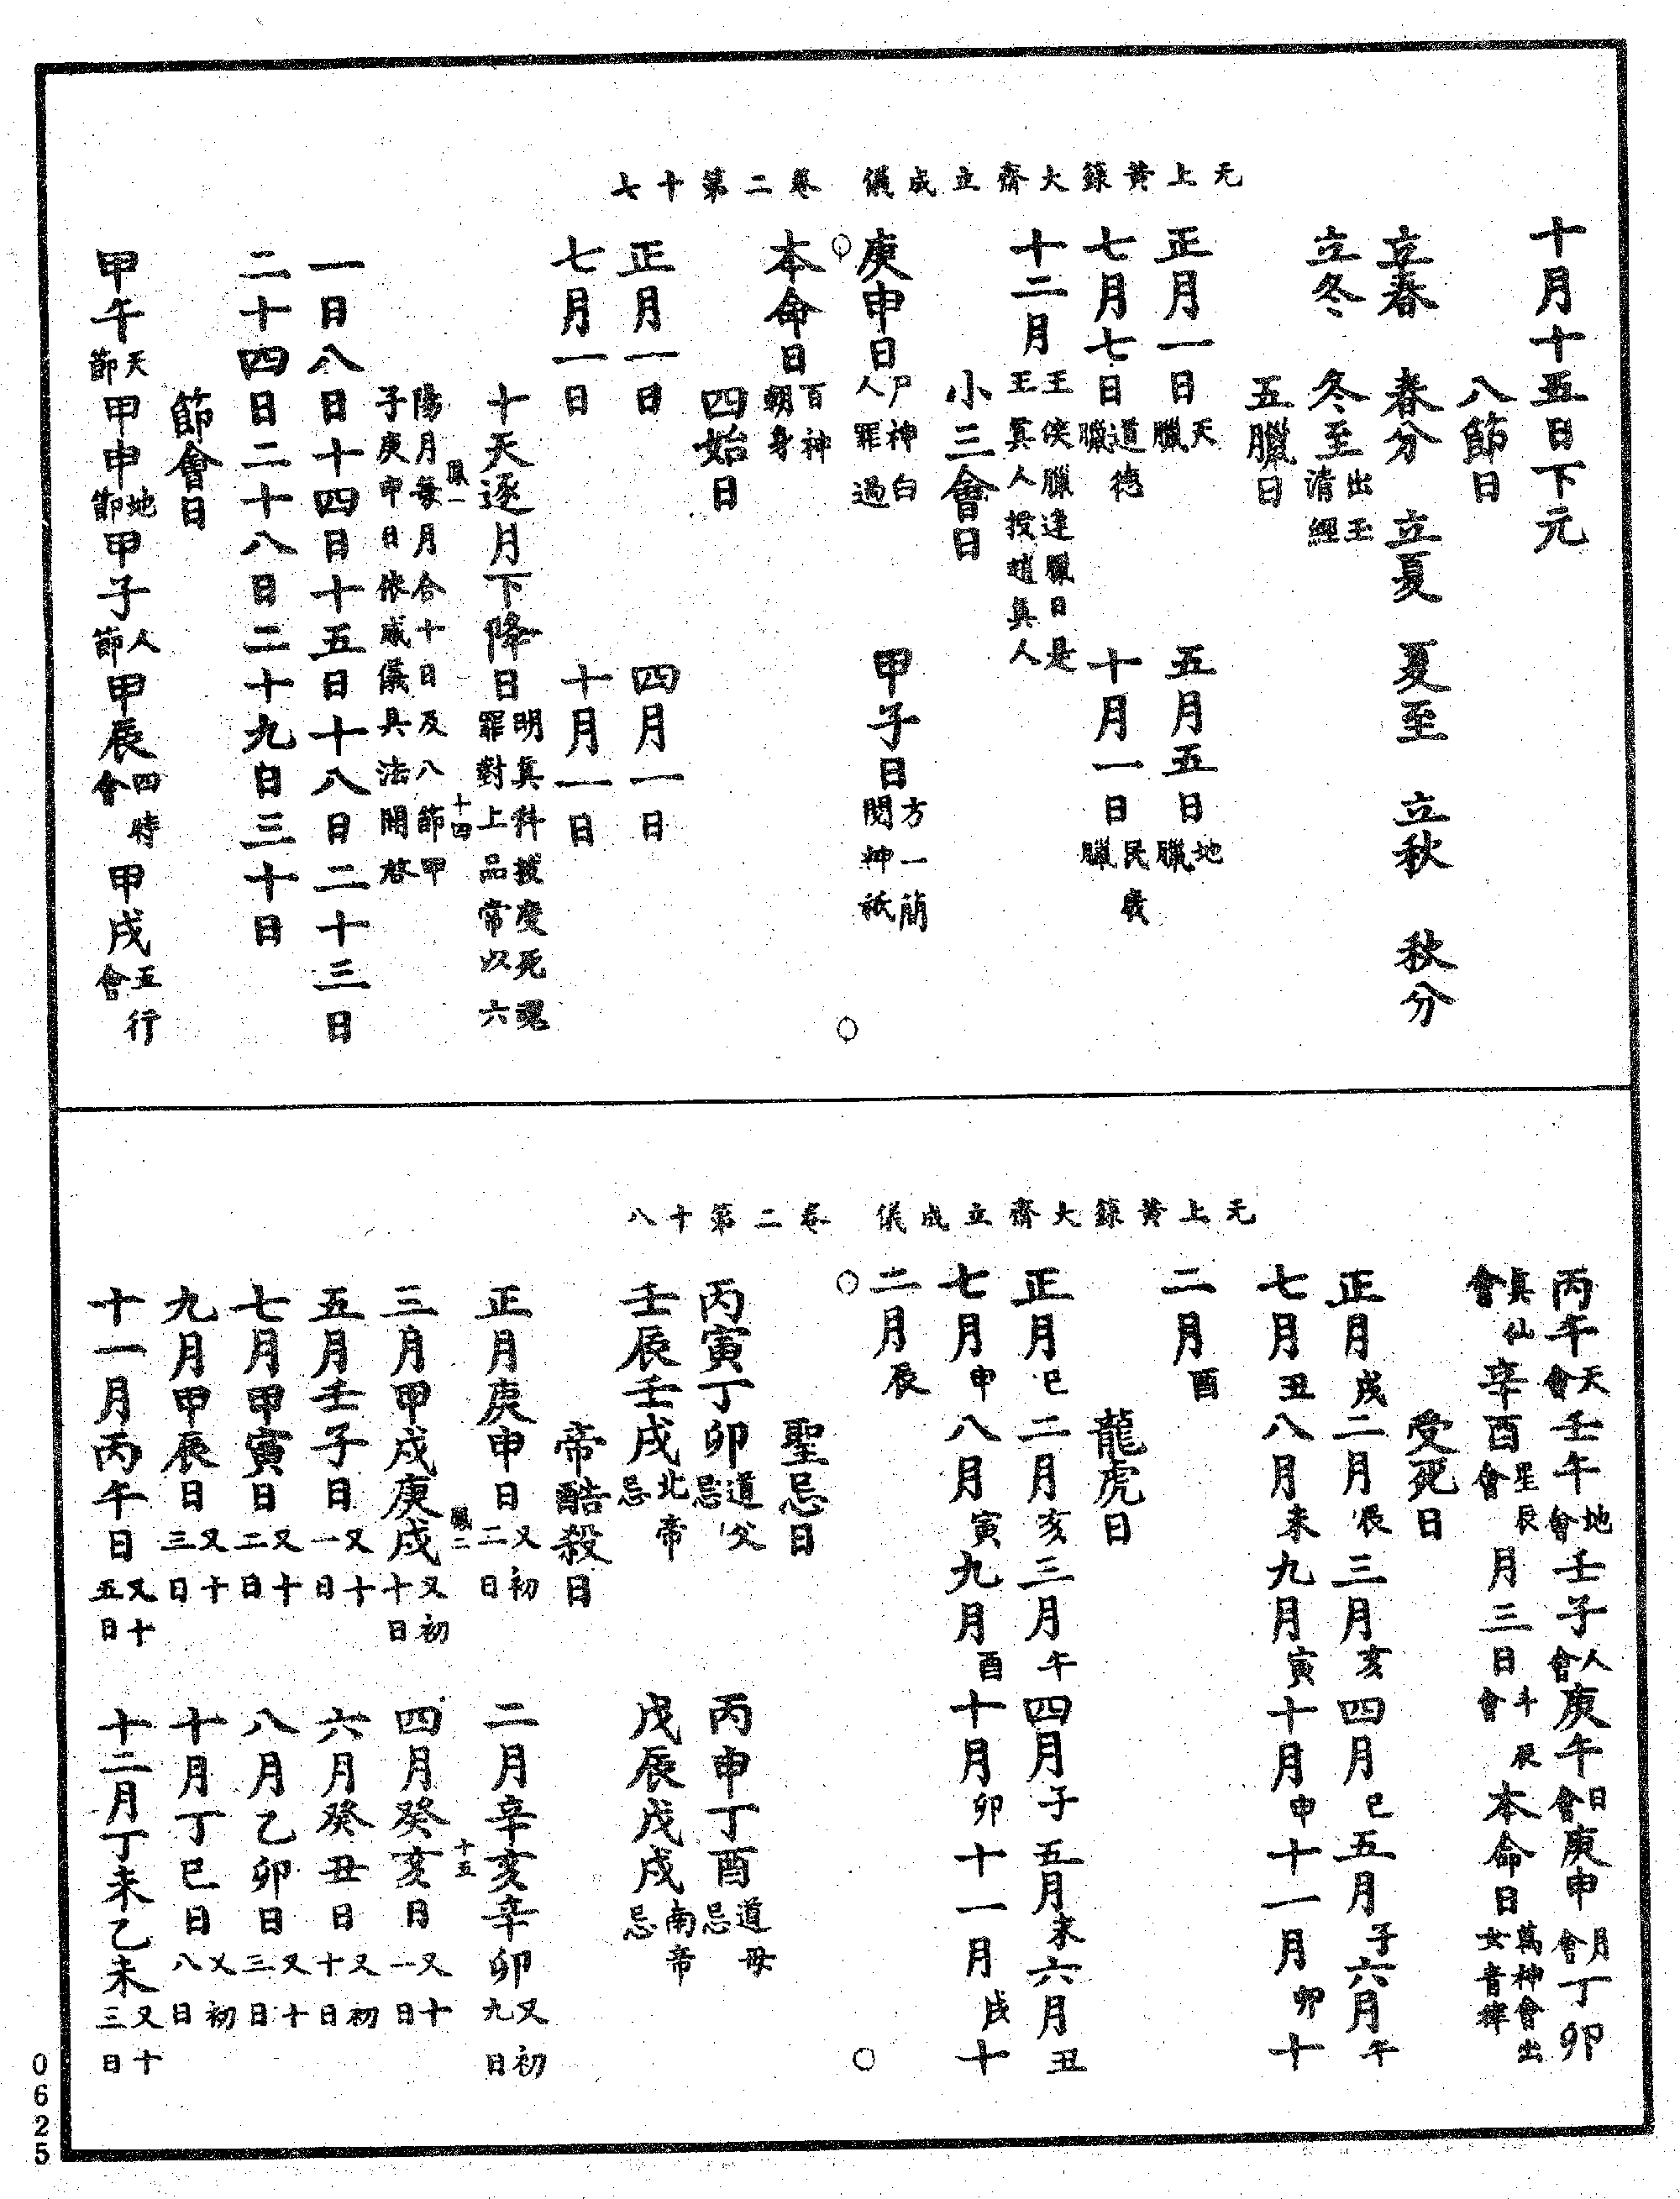 无上黃籙大齋立成儀　卷二第十七
十月十五日下元
八節日
立春　春分　立夏　夏至　立秋　秋分
立冬　冬至出玉清經
五臘日
正月一日天臘　五月五日地臘
七月七日道德臘　十月一日民歲臘
十二月王侯臘違臘日是王真人授趙真人
小三會日
庚申日尸神白人罪過　甲子日方一簡閱神祇
本命日百神朝身
四始日
正月一日　四月一日
七月一日　十月一日
十天逐月下降日明真科拔度死魂罪對上品常以六
臈一　十四
陽月每月合十日及八節甲子庚申日依威儀具法開啓
一日八日十四日十五日十八日二十三日
二十四日二十八日二十九日三十日
節會日
甲午天節甲申地節甲子人節甲辰四時會甲戌五行會
无上黃籙大齋立成儀　卷二第十八
丙午天會壬午地會壬子人會庚午日會庚申月會丁卯
真仙會辛酉星辰會月三日斗辰會本命日萬神會出女青律
受死日
正月戌二月辰三月亥四月巳五月子六月午
七月丑八月未九月寅十月申十一月卯十
二月酉
龍虎日
正月巳二月亥三月午四月子五月未六月丑
七月申八月寅九月酉十月卯十一月戌十
二月辰
聖忌日
丙寅丁卯道父忌　丙申丁酉道母忌
壬辰壬戌北帝忌　戊辰戊戌南帝忌
帝酷殺日
正月庚申日又初二日　二月辛亥辛卯又初九日
臈二　十五
三月甲戌庚戌又初十日　四月癸亥日又十一日
五月壬子日又十一日　六月癸丑日又初十日
七月甲寅日又十二日　八月乙卯日又十三日
九月甲辰日又十三日　十月丁巳日又初八日
十一月丙午日又十五日　十二月丁未乙未又十三日
0625